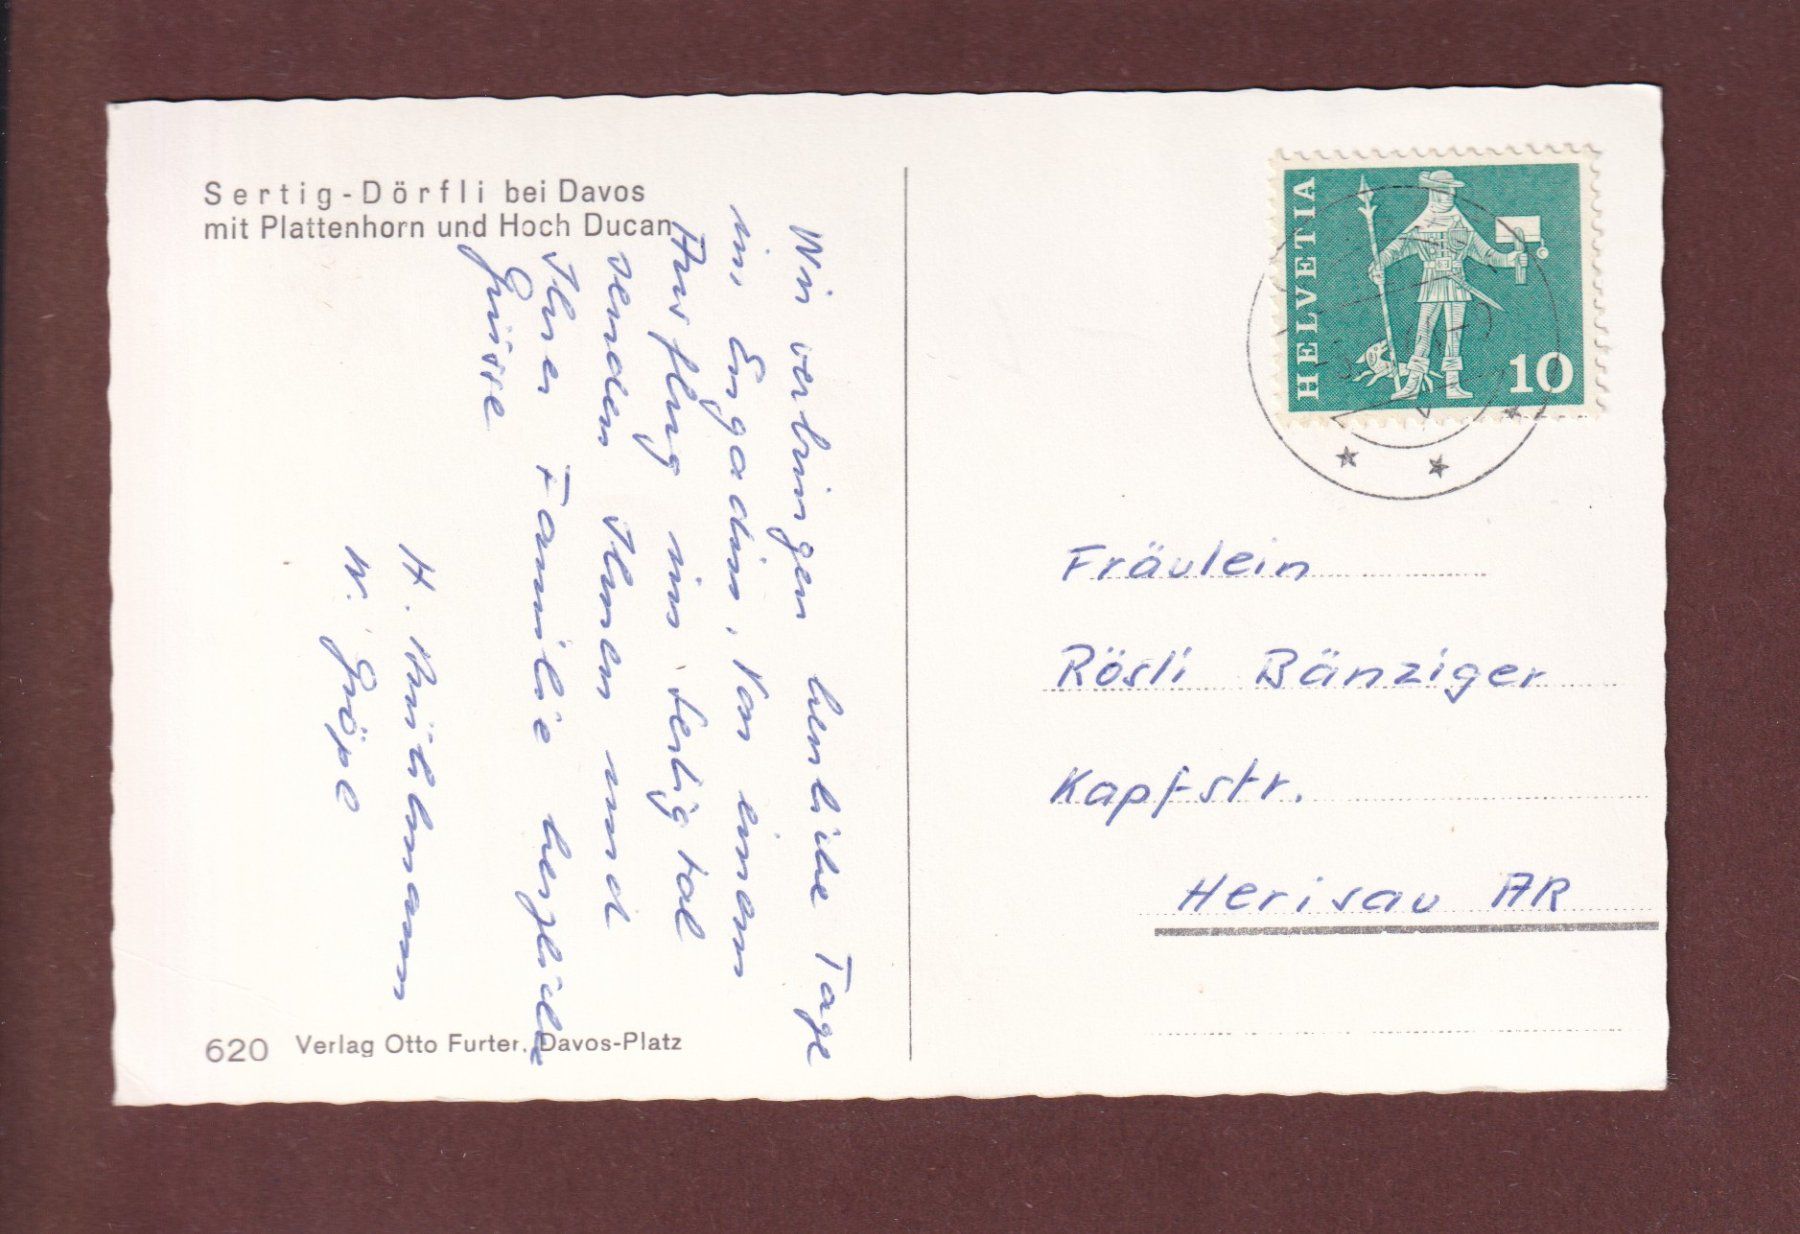 Sertig-Dörfli bei Davos
mit Plattenhorn und Hoch Ducan
Wir verbringen herrliche Tage
im Engadin. Von einem
Ausflug ins Sertigtal
senden Ihnen und
Ihrer Familie herzliche
Grüsse
H.
W.
620 Verlag Otto Furter, Davos-Platz
HELVETIA
10
Fräulein
Rösli Bänziger
Kapfstr.
Herisau AR